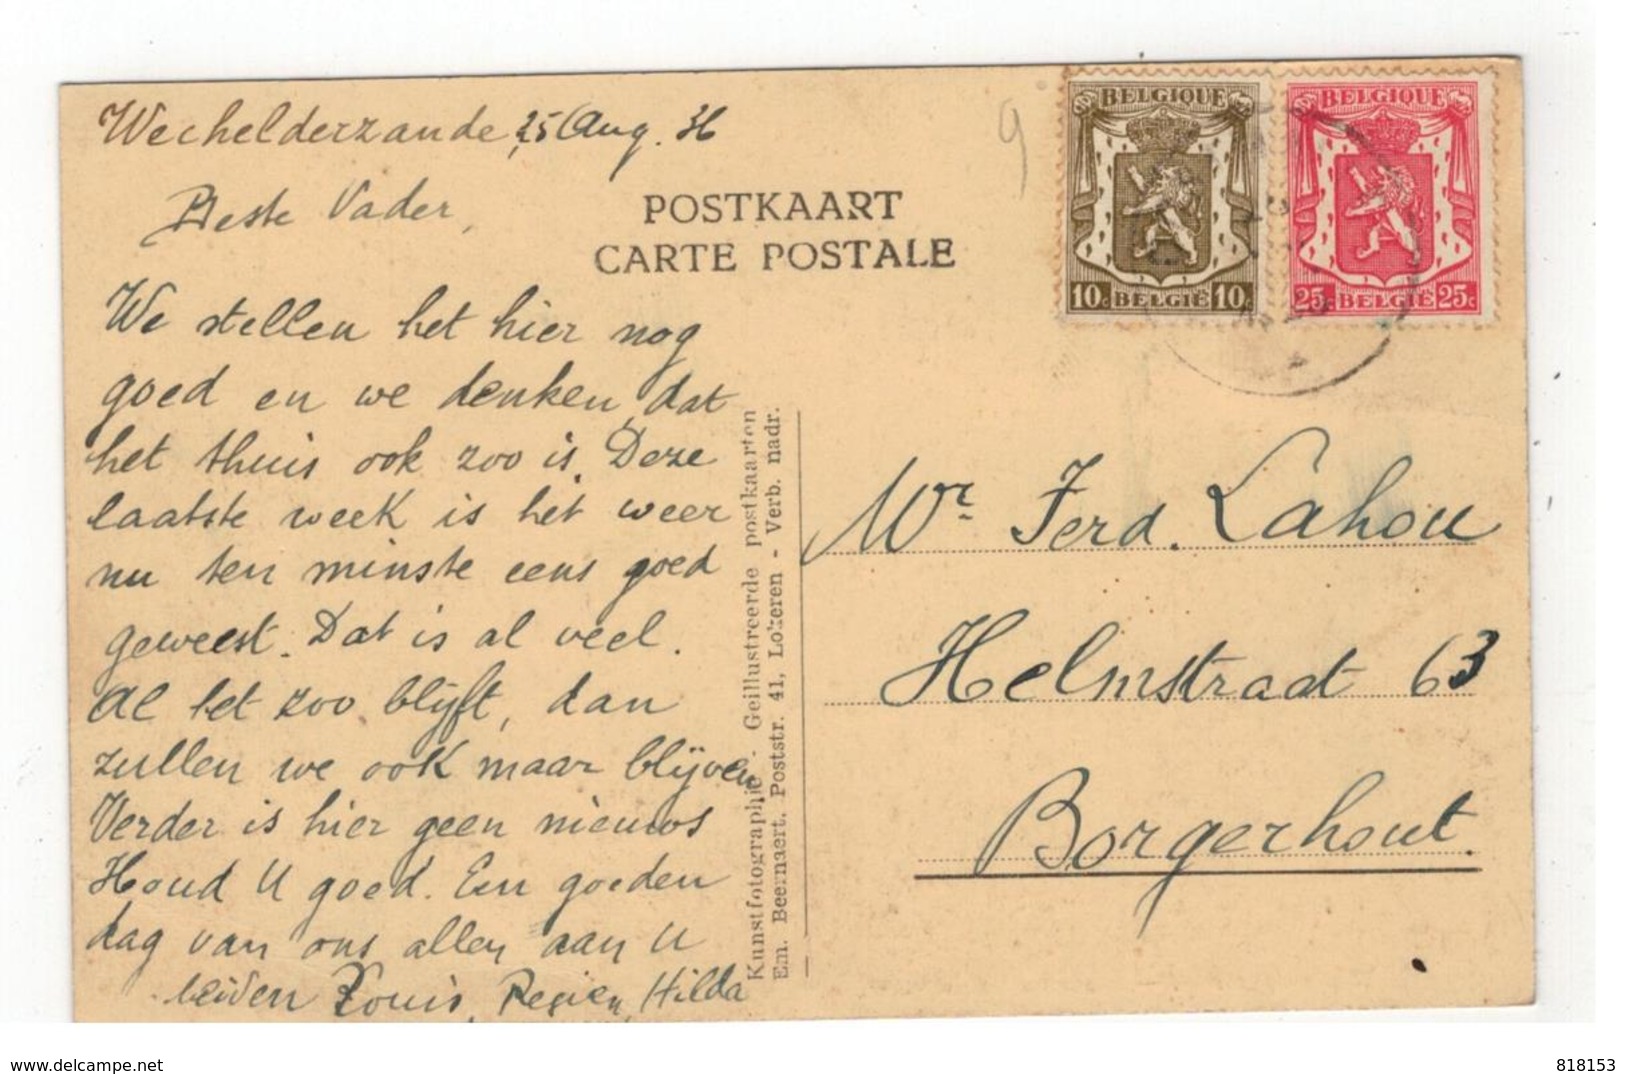 Wechelderzande, 25 Aug. 36
Beste Vader,
We stellen het hier nog
goed en we denken dat
het thuis ook zoo is. Deze
laatste week is het weer
nu ten minste eens goed
geweest. Dat is al veel.
Al het zoo blijft, dan
zullen we ook maar blijven
Verder is hier geen nieuws
Houd U goed. Een goeden
dag van ons allen aan U
beiden Louis, Hilda
POSTKAART
CARTE POSTALE
Kunstfotographie - Geillustreerde postkaarten
Em. Beernaert, Poststr. 41, Lokeren - Verb. nadr.
9
BELGIQUE
10c BELGIË 10c
BELGIQUE
25c BELGIË 25c
Mr. Ferd. Lahou
Helmstraat 63
Borgerhout.
delcampe.net
yesterday
818153